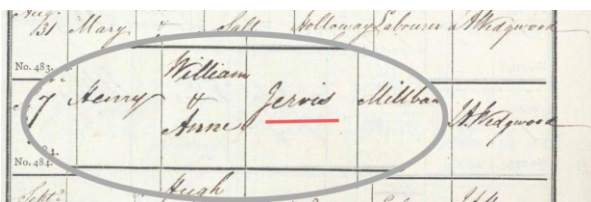 31 Mary & Salt Holloway Labourer A Wedgwood
No. 483.
William
7 Henry & Jervis Millban A Wedgwood
Anne
84.
No. 484.
Sept.
Hugh